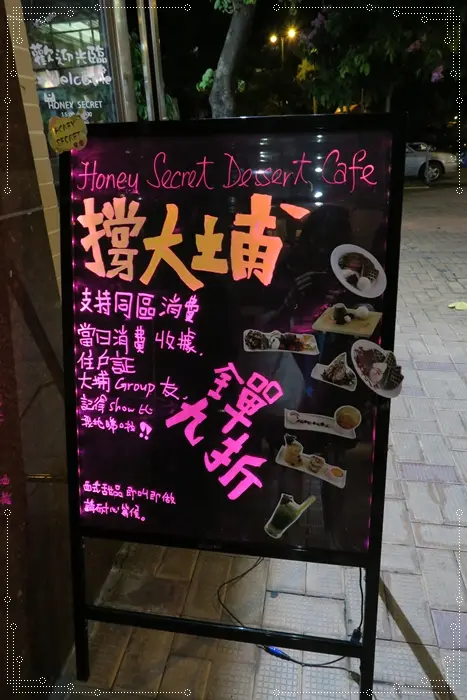 歡迎光臨
Welcome
HONEY SECRET
HONEY
SECRET
Honey Secret Dessert Cafe
撐大埔
支持同區消費
當日消費收據,
住户証
大埔 Group 友,
記得 show 比
我地睇啦!!
全單
九折
西式甜品即叫即做
請耐心等侯。